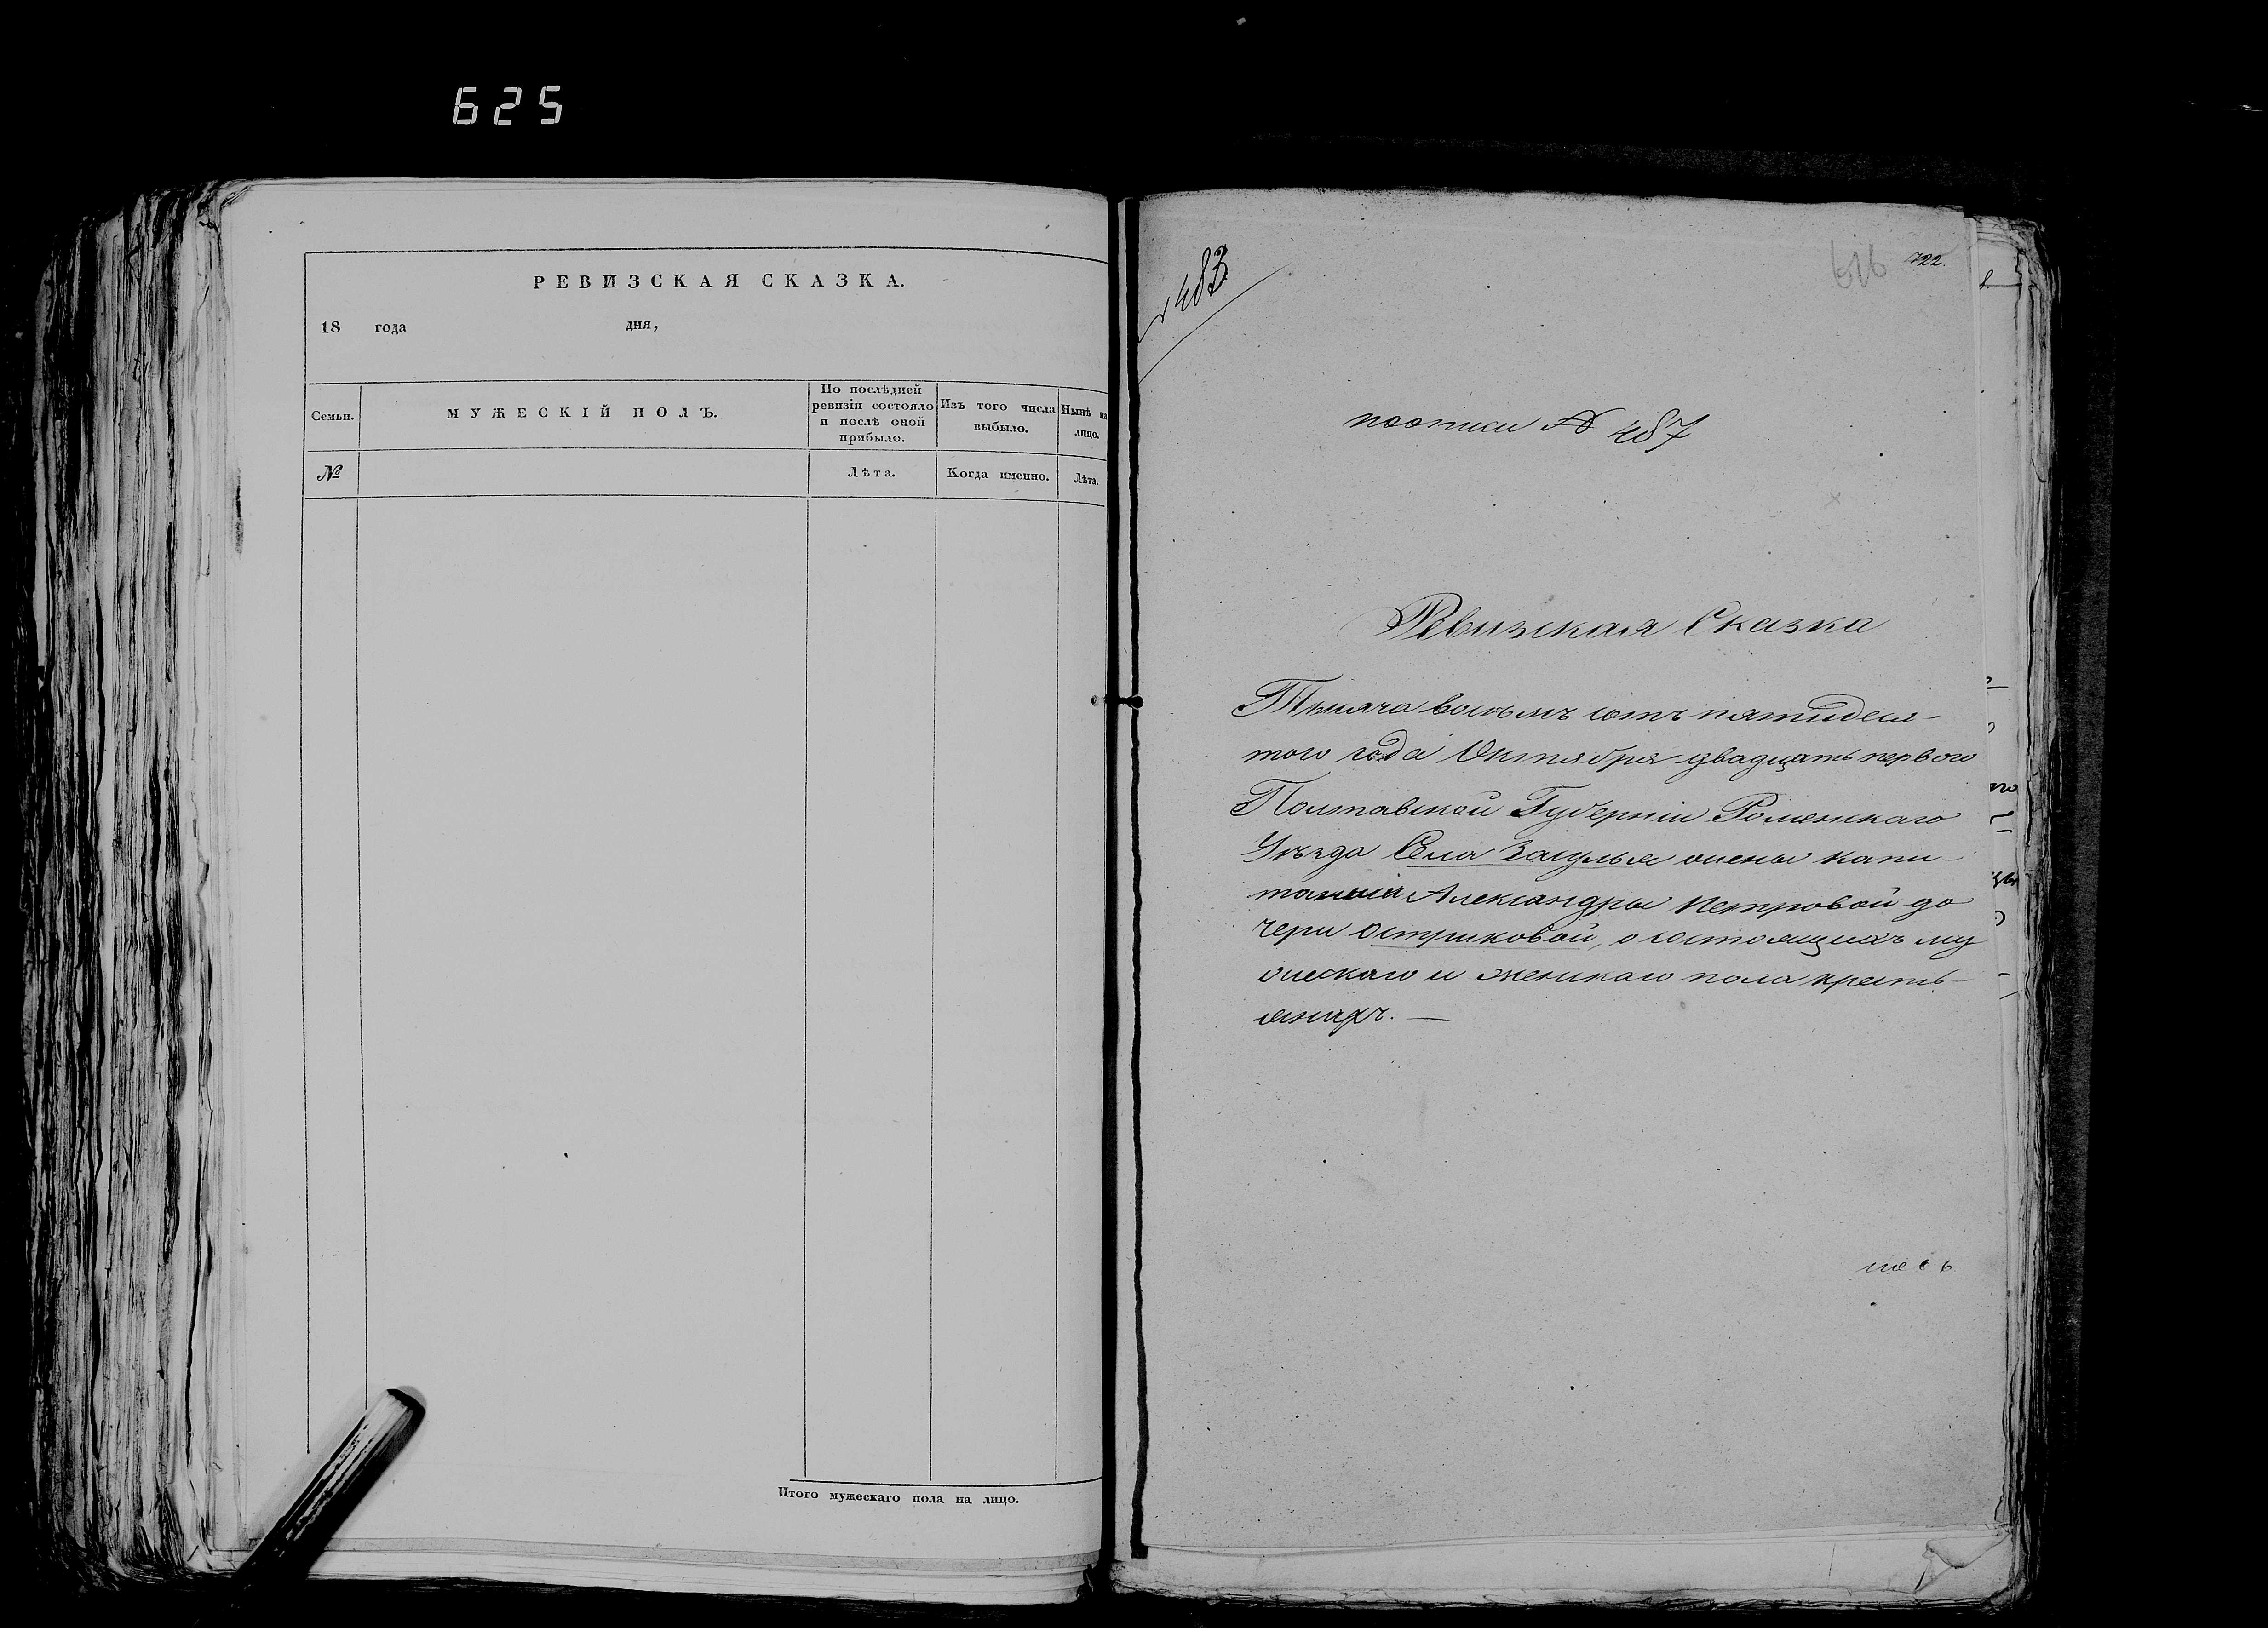 625
РЕВИЗСКАЯ СКАЗКА.
18 года дня,
Семьи.
МУЖЕСКІЙ ПОЛЪ.
По послѣдней
ревизіи состояло
и послѣ оной
прибыло.
Изъ того числа
выбыло.
Нынѣ на
лицо.
№
Лѣта.
Когда именно.
Лѣта.
Итого мужескаго пола на лицо.
483
616
722.
поописи № 487
Ревизская Сказка
Тысяча восемь сотъ пятидеся-
того года Октября двадцать первого
Полтавской Губерніи Роменскаго
Уѣзда Села Засулья жены капи-
таныи Александры Петровой до
чери Остриковой, о состоящихъ му
жескаго и женскаго пола кресть-
янахъ. —